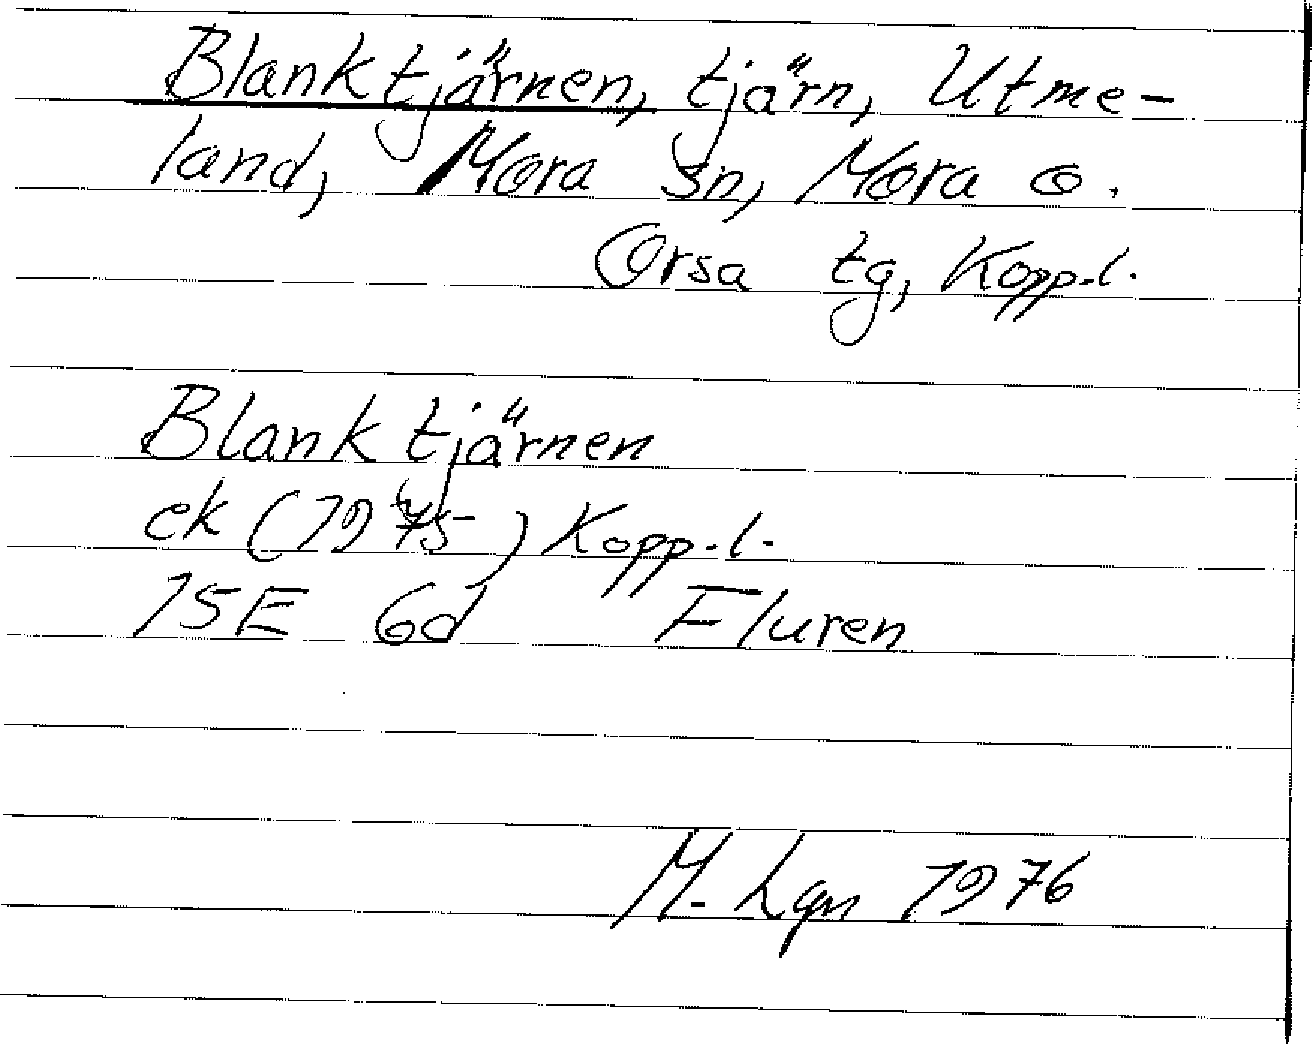 Blanktjärnen, tjärn, Utme-
land, Mora sn, Mora o.
Orsa tg, Kopp.l.
Blanktjärnen
ek (1975) Kopp.l.
15E 6d Fluren
M. Lgn 1976